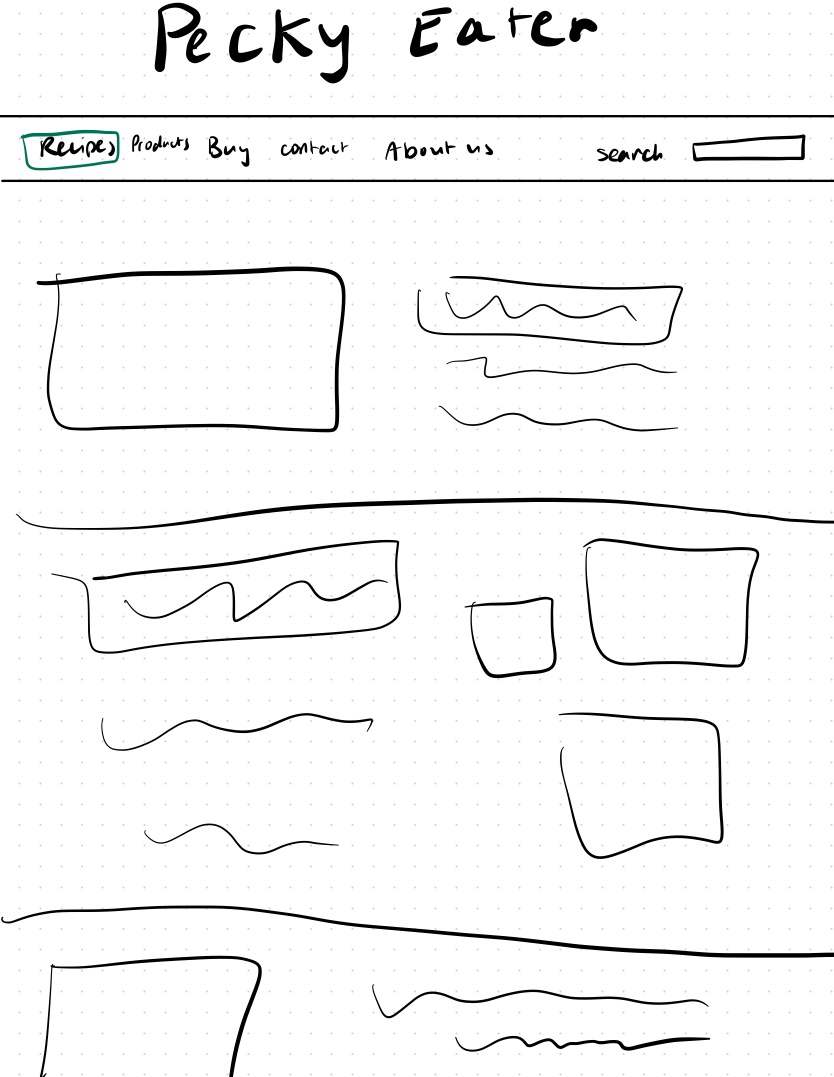 Pecky Eater
Recipes Products Buy contact About us search